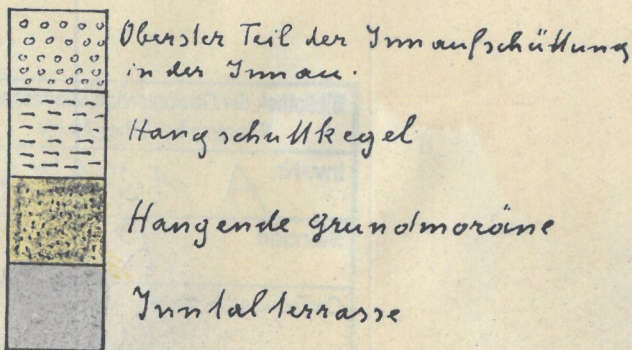 Oberster Teil der Innaufschüttung
in der Innau.
Hangschuttkegel
Hangende Grundmoräne
Inntalterrasse